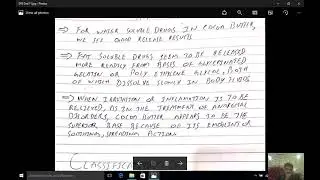 ⇒ FOR WATER SOLUBLE DRUGS IN COCOA BUTTER,
WE SEE GOOD RELEASE RESULTS
⇒ FAT SOLUBLE DRUGS SEEM TO BE RELEASED
MORE READILY FROM BASES OF GLYCERINATED
GELATIN OR POLY ETHYLENE GLYCOL, BOTH
OF WHICH DISSOLVE SLOWLY IN BODY FLUIDS
⇒ WHEN IRRITATION OR INFLAMATION IS TO BE
RELIEVED, AS IN THE TREATMENT OF ANORECTAL
DISORDERS, COCOA BUTTER APPEARS TO BE THE
SUPERIOR BASE BECAUSE OF ITS EMOLLIENT OR
SOOTHING, SPREADING ACTION